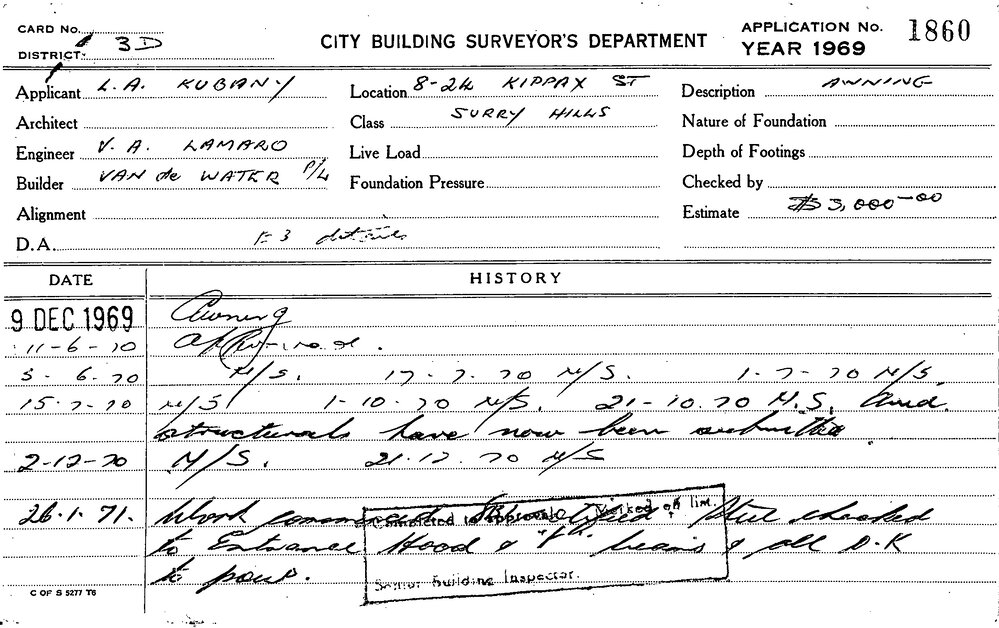 CARD No.
DISTRICT 3D
CITY BUILDING SURVEYOR'S DEPARTMENT
APPLICATION No. 1860
YEAR 1969
Applicant L.A. KUBANY
Location 8-24 KIPPAX ST
Description AWNING
Architect
Class SURRY HILLS
Nature of Foundation
Engineer V. A. LAMARO
Live Load
Depth of Footings
Builder VAN de WATER P/L
Foundation Pressure
Checked by
Alignment
Estimate $3,000-00
D.A. K3 details
DATE HISTORY
9 DEC 1969 Awning
11-6-70
5-6-70 N/S. 17-7-70 N/S. 1-7-70 N/S.
15-7-70 N/S 1-10-70 N/S. 21-10-70 N.S. Amd.
structurals have now been submitted
2-12-70 N/S. 21.12.70 N/S
26.1.71. Work commenced Steel checked
to Entrance Hood & beams & all O.K
to pour.
Completed to approval. Marked off lim.
Senior Building Inspector.
C OF S 5277 T6